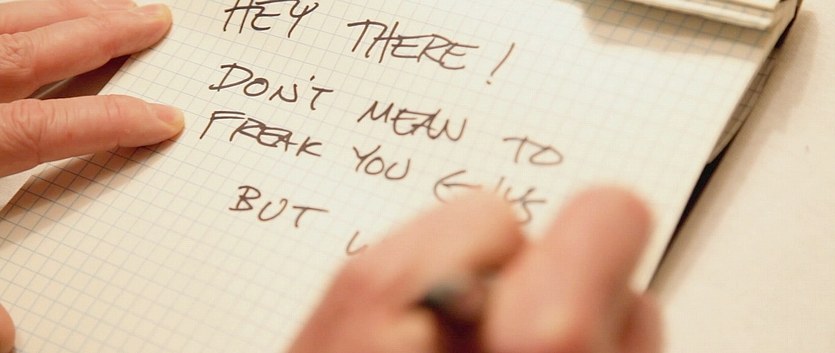 HEY THERE!
DON'T MEAN TO
FREAK YOU GUYS
BUT